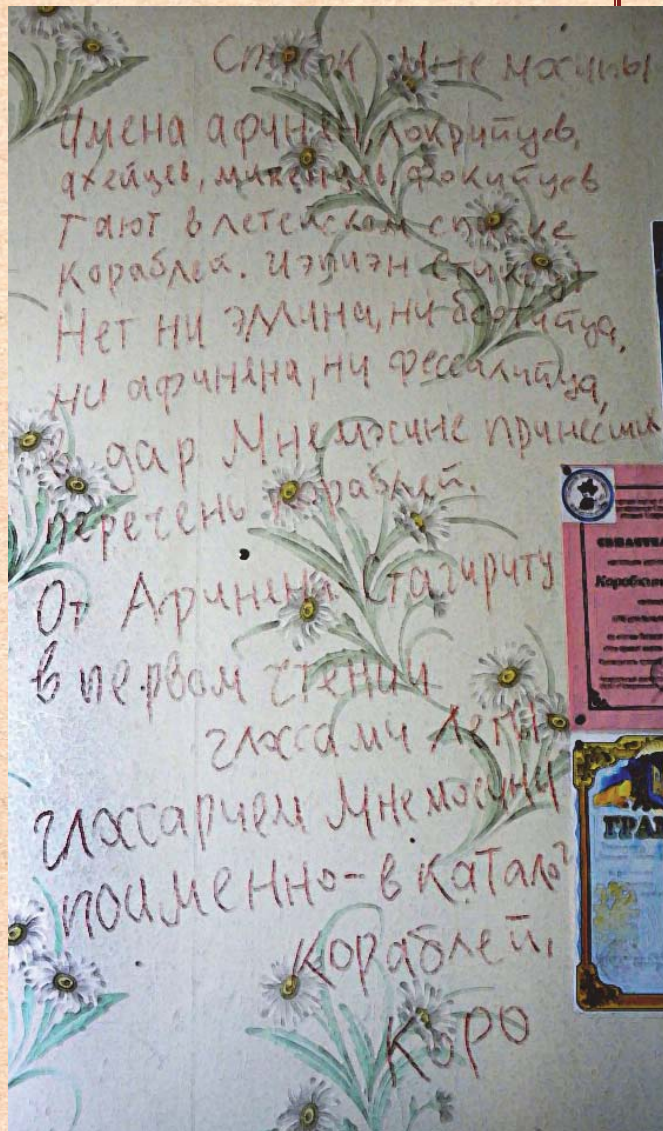 Список Мнемосины
Имена афинян, локрийцев,
ахейцев, микенцев, фокийцев
тают в летейском списке
кораблей.
Нет ни эллина, ни
ни афиняна, ни фессалийца,
в дар Мнемосине принёсших
перечень кораблей.
От Афиняна Стагириту
в первом чтении
глоссами Леты
глоссарием Мнемосины
поимённо - в каталог
кораблей,
Коро
ГРАМ